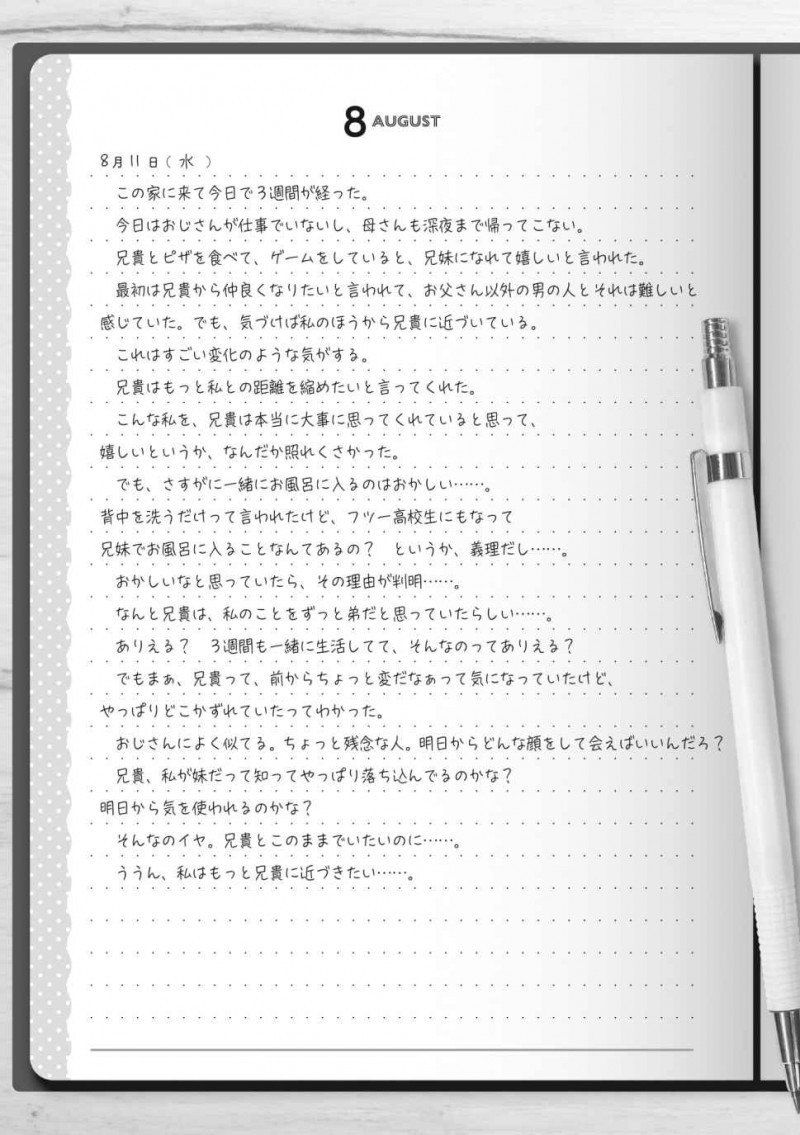 8 AUGUST
8月11日(水)
この家に来て今日で3週間が経った。
今日はおじさんが仕事でいないし、母さんも深夜まで帰ってこない。
兄貴とピザを食べて、ゲームをしていると、兄妹になれて嬉しいと言われた。
最初は兄貴から仲良くなりたいと言われて、お父さん以外の男の人とそれは難しいと
感じていた。でも、気づけば私のほうから兄貴に近づいている。
これはすごい変化のような気がする。
兄貴はもっと私との距離を縮めたいと言ってくれた。
こんな私を、兄貴は本当に大事に思ってくれていると思って、
嬉しいというか、なんだか照れくさかった。
でも、さすがに一緒にお風呂に入るのはおかしい……。
背中を洗うだけって言われたけど、フツー高校生にもなって
兄妹でお風呂に入ることなんてあるの？　というか、義理だし……。
おかしいなと思っていたら、その理由が判明……。
なんと兄貴は、私のことをずっと弟だと思っていたらしい……。
ありえる？　3週間も一緒に生活してて、そんなのってありえる？
でもまぁ、兄貴って、前からちょっと変だなあって気になっていたけど、
やっぱりどこかずれていたってわかった。
おじさんによく似てる。ちょっと残念な人。明日からどんな顔をして会えばいいんだろ？
兄貴、私が妹だって知ってやっぱり落ち込んでるのかな？
明日から気を使われるのかな？
そんなのイヤ。兄貴とこのままでいたいのに……。
ううん、私はもっと兄貴に近づきたい……。